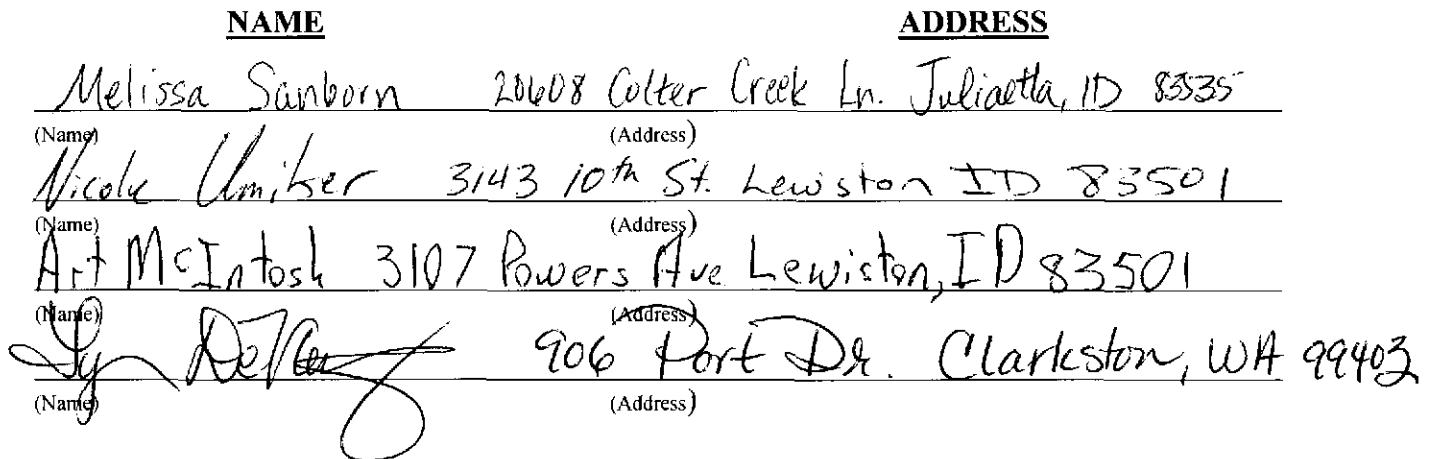 NAME ADDRESS
Melissa Sanborn 20608 Colter Creek Ln. Juliaetta, ID 83535
(Name) (Address)
Nicole Umiker 3143 10th St. Lewiston ID 83501
(Name) (Address)
Art McIntosh 3107 Powers Ave Lewiston, ID 83501
(Name) (Address)
906 Port Dr. Clarkston, WA 99403
(Name) (Address)